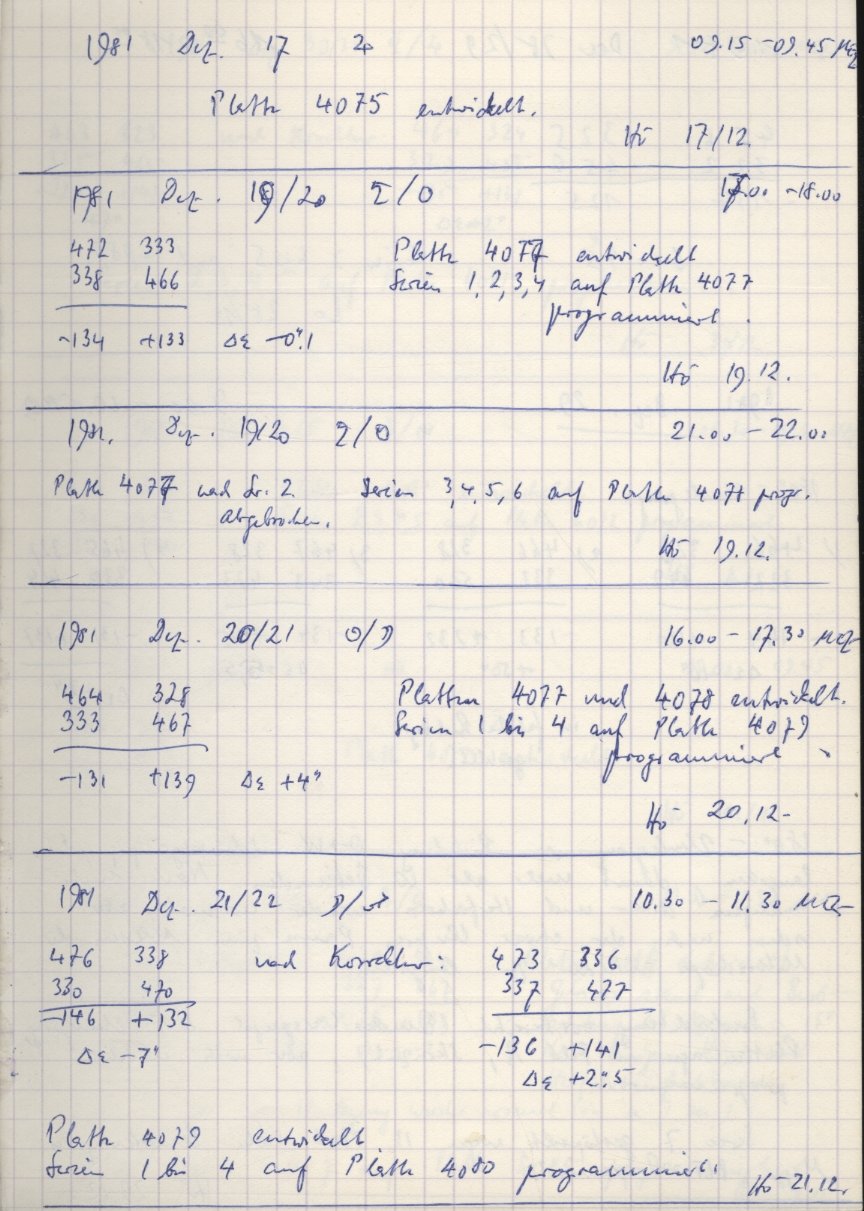 1981 Dez. 17 ♃ 09.15 - 09.45 MEZ
Platte 4075 entwickelt.
Hö 17/12.
1981 Dez. 19/20 ♄/☉ 17.00 - 18.00
472 333 Platte 4077 entwickelt
338 466 Serien 1, 2, 3, 4 auf Platte 4077
programmiert.
-134 +133 Δε -0".1
Hö 19.12.
1981. Dez. 19/20 ♄/☉ 21.00 - 22.00
Platte 4077 nach Sr. 2 Serien 3, 4, 5, 6 auf Platte 4078 progr.
abgebrochen.
Hö 19.12.
1981 Dez. 20/21 ☉/☽ 16.00 - 17.30 MEZ
464 328 Platten 4077 und 4078 entwickelt.
333 467 Serien 1 bis 4 auf Platte 4079
programmiert
-131 +139 Δε +4"
Hö 20.12.
1981 Dez. 21/22 ☽/♂ 10.30 - 11.30 MEZ
476 338 nach Korrektur: 473 336
330 470 337 477
-146 +132
-136 +141
Δε -7"
Δε +2".5
Platte 4079 entwickelt
Serien 1 bis 4 auf Platte 4080 programmiert.
Hö 21.12.